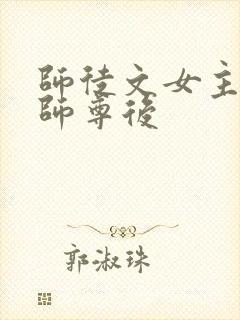 師徒文女主
師尊後
郭淑珠